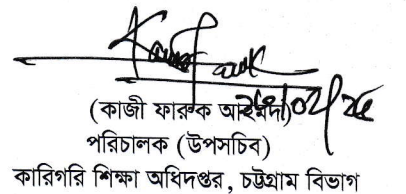 (কাজী ফারুক আহম্মদ)
পরিচালক (উপসচিব)
কারিগরি শিক্ষা অধিদপ্তর, চট্টগ্রাম বিভাগ